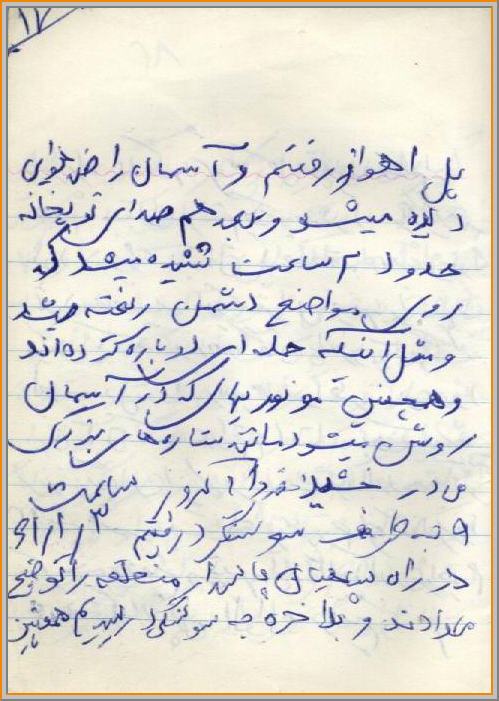 ۱۷
پل اهواز رفتم و آسمان را
دیده میشو و بعد هم صدای توپخانه
حدود ۲ ساعت شنیده میشد که
روی مواضع دشمن ریخته میشد
و مثل اینکه حمله ای دوباره کرده‌اند
و همچنین منورهای که در آسمان
روشن میشود مانند ستاره‌های بزرگ
می‌درخشید فردا ساعت
۹ به طرف سوسنگرد رفتیم ۳/۱/۶۱
در راه منطقه را توضیح
میدادند و بلاخره به سوسنگرد رسیدیم همچنین